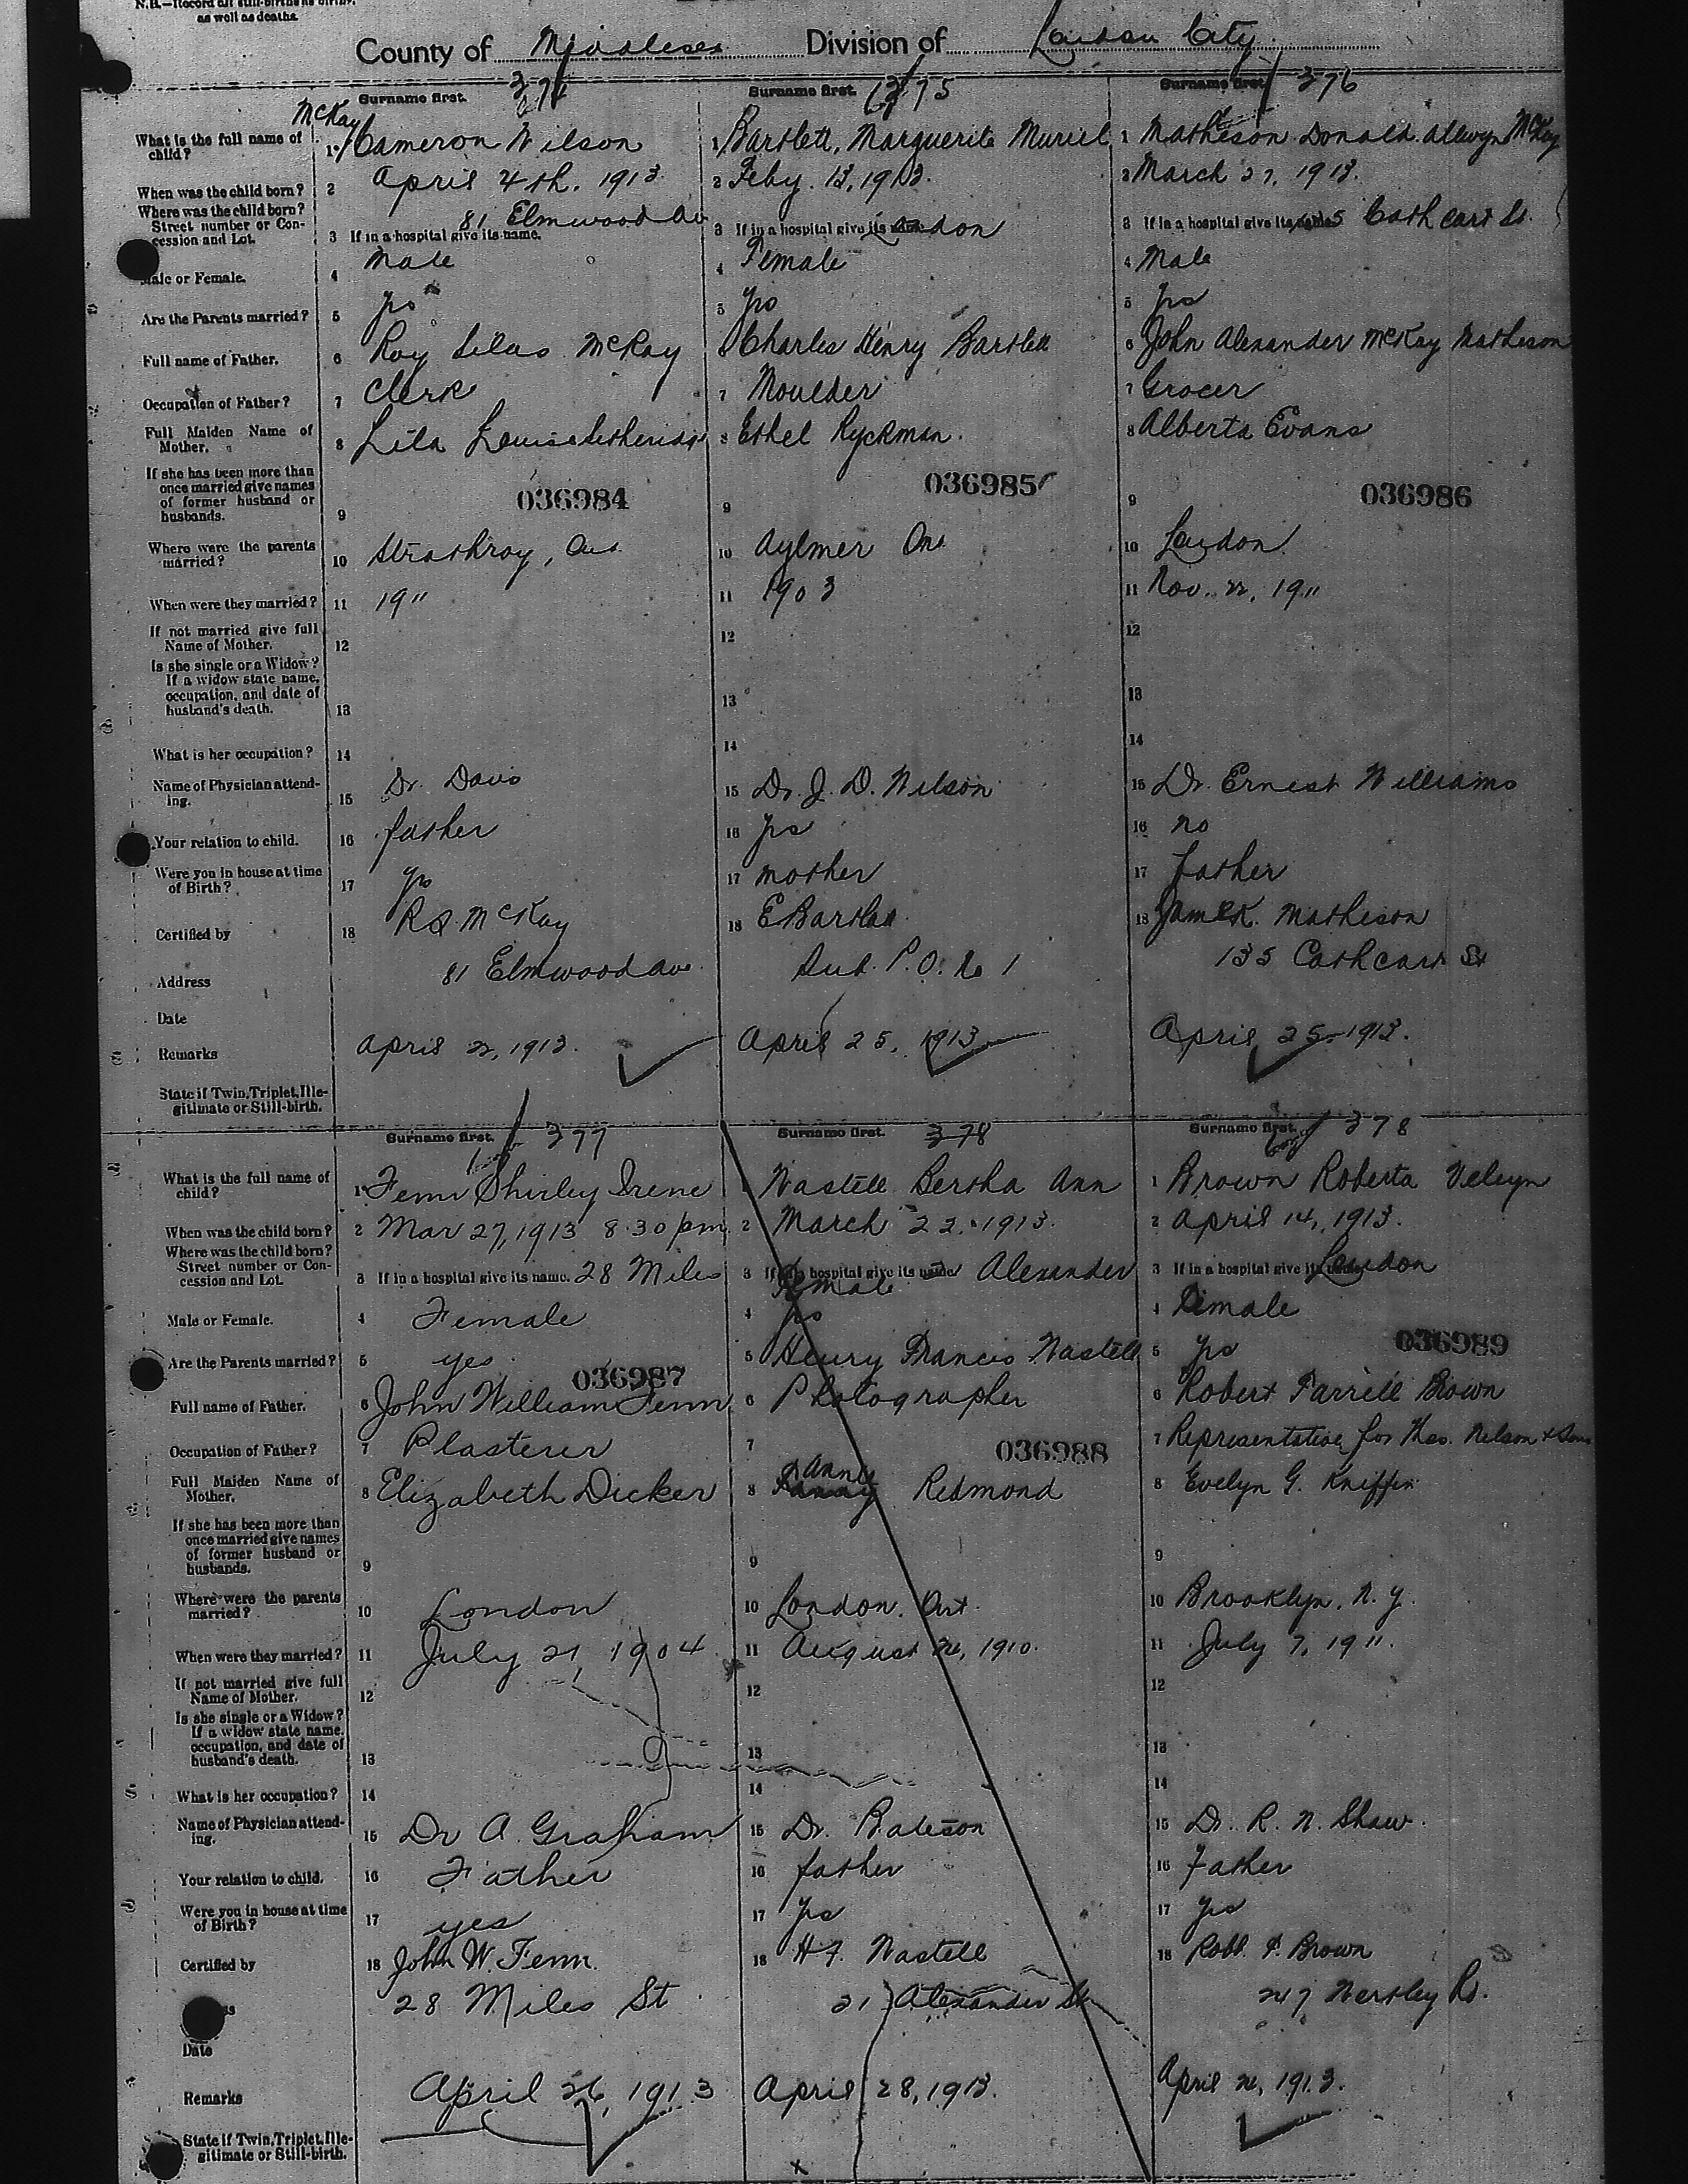 N.B.—Record all still-births as births,
as well as deaths.
County of Middlesex Division of London City
Surname first. 374
Surname first. 375
Surname first. 376
What is the full name of child? 1 McKay Cameron Wilson
1 Bartlett, Marguerite Muriel
1 Matheson Donald Allwyn McKay
When was the child born? 2 April 4th, 1913
2 Feby. 13, 1913.
2 March 27, 1913.
Where was the child born? Street number or Concession and Lot. 3 If in a hospital give its name. 81 Elmwood Av
3 If in a hospital give its name London
3 If in a hospital give its name Cathcart St.
Male or Female. 4 Male
4 Female
4 Male
Are the Parents married? 5 yes
5 yes
5 yes
Full name of Father. 6 Roy Silas McKay
6 Charles Henry Bartlett
6 John Alexander McKay Matheson
Occupation of Father? 7 Clerk
7 Moulder
7 Grocer
Full Maiden Name of Mother. 8 Lila Louise
8 Ethel Ryckman.
8 Alberta Evans
If she has been more than once married give names of former husband or husbands. 9 036984
9 036985
9 036986
Where were the parents married? 10 Strathroy, Ont.
10 Aylmer Ont
10 London
When were they married? 11 1911
11 1903
11 Nov. 22, 1911
If not married give full Name of Mother. 12
12
12
Is she single or a Widow? If a widow state name, occupation, and date of husband's death. 13
13
13
What is her occupation? 14
14
14
Name of Physician attending. 15 Dr. Davis
15 Dr. J. D. Wilson
15 Dr. Ernest Williams
Your relation to child. 16 father
16 yes
16 no
Were you in house at time of Birth? 17 yes
17 mother
17 father
Certified by 18 R S McKay
18 E Bartlett
18 Matheson
Address 81 Elmwood Ave.
Sub. P.O. No 1
135 Cathcart St
Date
Remarks April 22, 1913.
April 25, 1913
April 25 1913.
State if Twin, Triplet, Illegitimate or Still-birth.
Surname first. 377
Surname first. 378
Surname first. 378
What is the full name of child? 1 Fenn Shirley Irene
1 Wastell Bertha Ann
1 Brown Roberta Velcyn
When was the child born? 2 Mar 27, 1913 8.30 pm
2 March 22. 1913.
2 April 14, 1913.
Where was the child born? Street number or Concession and Lot. 3 If in a hospital give its name. 28 Miles
3 If in a hospital give its name Alexander
3 If in a hospital give its name London
Male or Female. 4 Female
Female
4 yes
4 Female
Are the Parents married? 5 yes
5 Henry Francis Wastell
5 yes 036989
036987
Full name of Father. 6 John William Fenn
6 Photographer
6 Robert Farrell Brown
Occupation of Father? 7 Plasterer
7 036988
7 Representative for Thos. Nelson & Sons
Full Maiden Name of Mother. 8 Elizabeth Dicker
8 Annie Redmond
8 Evelyn G. Kniffin
If she has been more than once married give names of former husband or husbands. 9
9
9
Where were the parents married? 10 London
10 London, Ont.
10 Brooklyn, N.Y.
When were they married? 11 July 21, 1904
11 August 24, 1910.
11 July 7, 1911.
If not married give full Name of Mother. 12
12
12
Is she single or a Widow? If a widow state name, occupation, and date of husband's death. 13
13
13
What is her occupation? 14
14
14
Name of Physician attending. 15 Dr A. Graham
15 Dr. Bateson
15 Dr. R. N. Shaw.
Your relation to child. 16 Father
16 father
16 Father
Were you in house at time of Birth? 17 yes
17 yes
17 yes
Certified by 18 John W. Fenn.
18 H F. Wastell
18 Robt. F. Brown
28 Miles St
21 Alexander St
247 Wortley Rd.
Date
Remarks April 26, 1913
April 28, 1913.
April 24, 1913.
State if Twin, Triplet, Illegitimate or Still-birth.